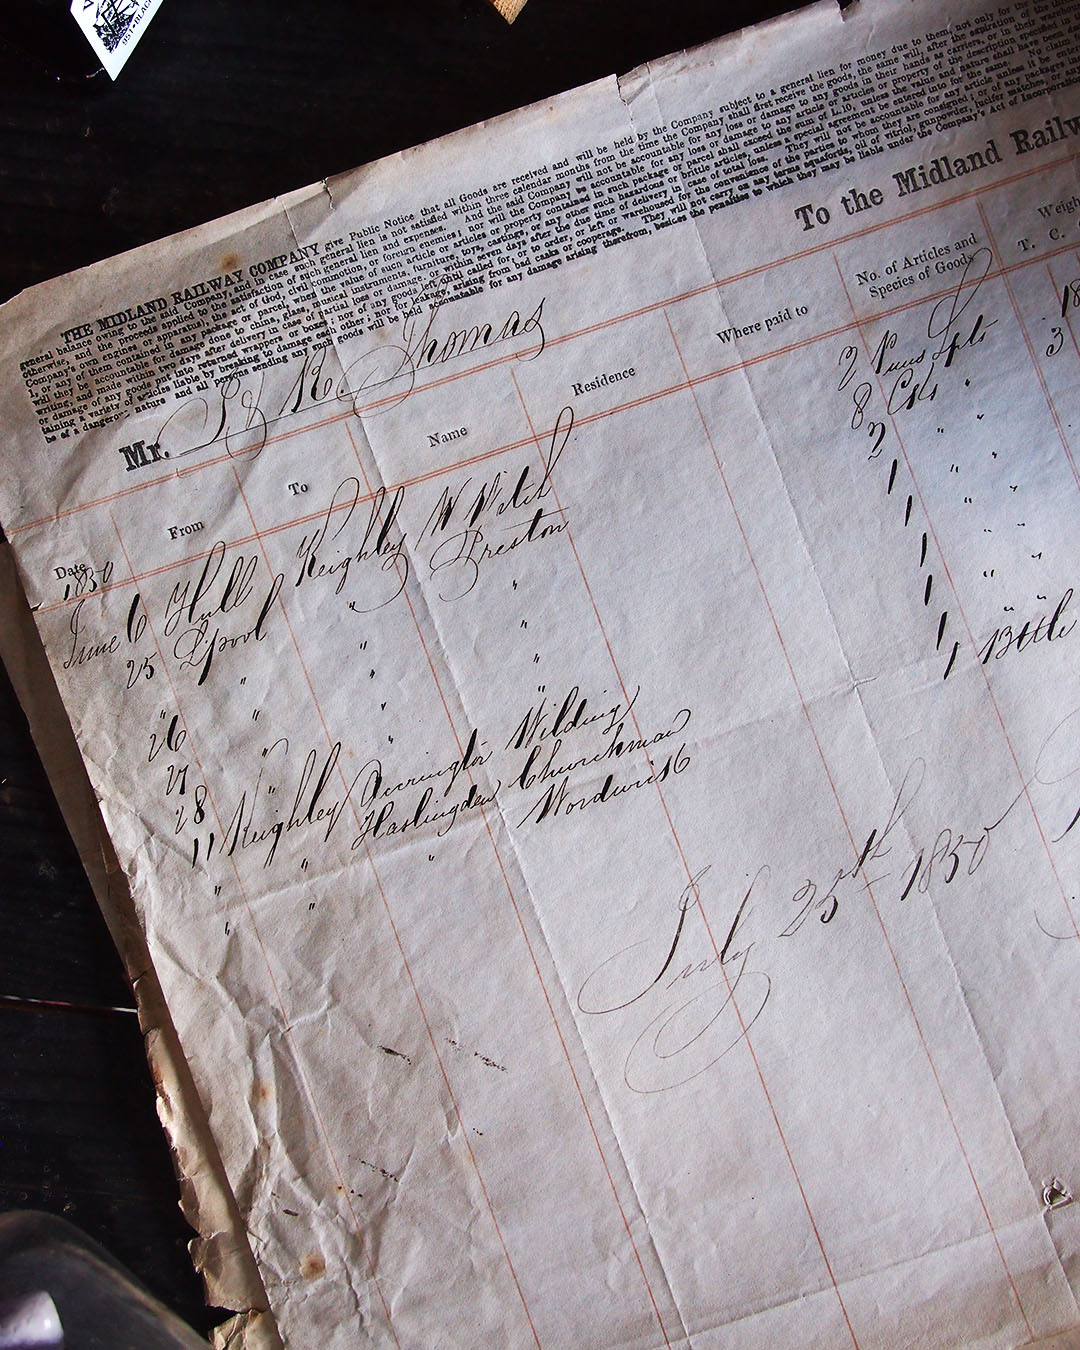 951•BLAC
THE MIDLAND RAILWAY COMPANY give Public Notice that all Goods are received and will be held by the Company subject to a general lien for money due to them, not only for the
general balance owing to the said Company, and in case such general lien is not satisfied within three calendar months from the time the Company shall first receive the goods, the same will, after the expiration of the
otherwise, and the proceeds applied to the satisfaction of such general lien and expenses. And the said Company will not be accountable for any loss or damage to any goods in their hands as carriers, or in their
Company's engines or apparatus, the act of God, civil commotion, or foreign enemies; nor will the Company be accountable for any loss or damage to any article or articles or property of the description specified in
or any of them contained in any package or parcel, when the value of such article or articles or property contained in such package or parcel shall exceed the sum of L.10, unless the value and nature shall have been
will they be accountable for damage done to china, glass, musical instruments, furniture, toys, castings, or any other such hazardous or brittle articles, unless special agreement be entered into for the No claim
writing, and made within two days after delivery in case of partial loss or damage, or within seven days after the due time of delivery in case of total loss. They will not be accountable for any article unless it be
or damage of any goods put into returned wrappers or boxes; nor of any goods left until called for, or to order, or left or warehoused for the convenience of the parties to whom they are consigned; or of any packages
taining a variety of articles liable by breaking to damage each other; nor for leakage, arising from bad casks or cooperage. They will not carry on any terms aquafortis, oil of vitriol, gunpowder, lucifer matches, or any
be of a dangerous nature and all persons sending any such goods will be held accountable for any damage arising therefrom, besides the penalties to which they may be liable under the Company's Act of
Mr. & R. Thomas
To the Midland
Date From To Name Residence Where paid to No. of Articles and Species of Goods T. C.
1830
June 6 Hull Keighley W Pitch 2
25 Lpool " Preston 8
" " " 2 " "
26 " " " 1 " "
27 " " " 1 " "
28 " " " 1 " "
11 Keighley Wilding 1
" Haslingden Churchman 1
" " 1 Bttle
July 25th 1830